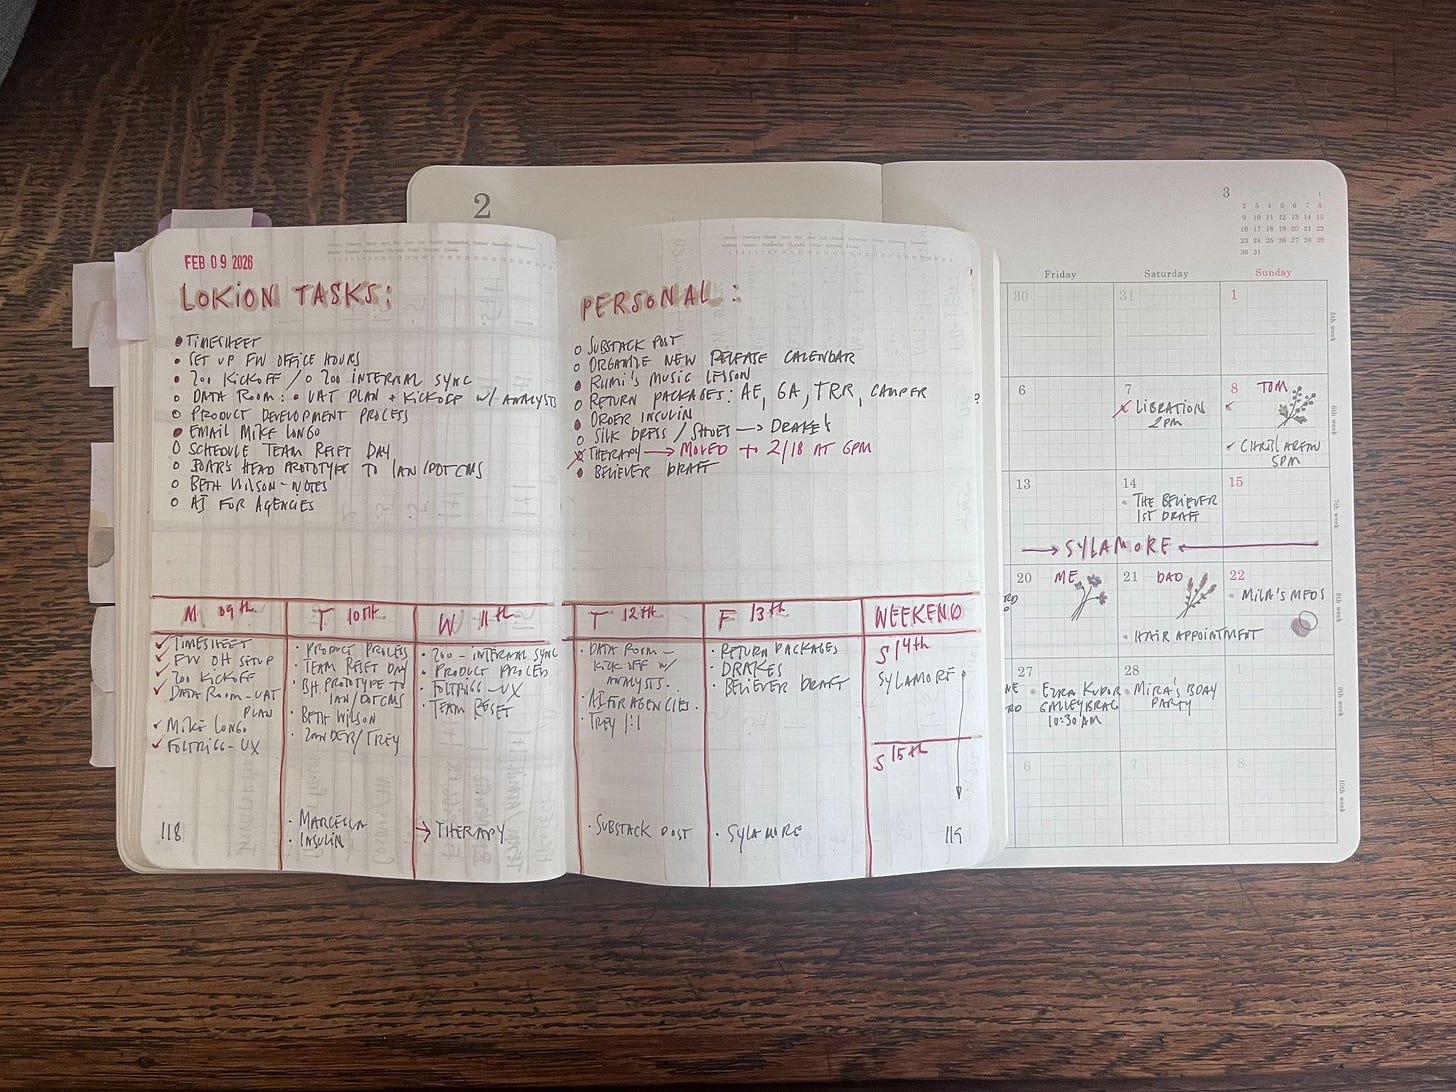 FEB 09 2026
LOKION TASKS:
TIMESHEET
SET UP FW OFFICE HOURS
200 KICKOFF / 200 INTERNAL SYNC
DATA ROOM: UAT PLAN + KICKOFF W/ ANALYSTS
PRODUCT DEVELOPMENT PROCESS
EMAIL MIKE LONGO
SCHEDULE TEAM RESET DAY
BOAR'S HEAD PROTOTYPE TO IAN/DOTCMS
BETH WILSON - NOTES
AI FOR AGENCIES
PERSONAL:
SUBSTACK POST
ORGANIZE NEW RELEASE CALENDAR
RUMI'S MUSIC LESSON
RETURN PACKAGES: AE, GA, TRR, CAMPER
ORDER INSULIN
SILK DRESS / SHOES → DRAKE'S
THERAPY → MOVED TO 2/18 AT 6PM
BELIEVER DRAFT
M 09th
✓ TIMESHEET
✓ FW OH SETUP
✓ 200 KICKOFF
✓ DATA ROOM - UAT
PLAN
✓ MIKE LONGO
✓ FOLTRIGG - UX
118
T 10th
· PRODUCT PROCESS
· TEAM RESET DAY
· BH PROTOTYPE TO
IAN/DOTCMS
· BETH WILSON
· ZANDER/TREY
· MARCELLA
· INSULIN
W 11th
· 200 - INTERNAL SYNC
· PRODUCT PROCESS
· FOLTRIGG - UX
· TEAM RESET
→ THERAPY
T 12th
· DATA ROOM -
KICKOFF W/
ANALYSTS
· AI FOR AGENCIES
· TREY 1:1
· SUBSTACK POST
F 13th
· RETURN PACKAGES
· DRAKES
· BELIEVER DRAFT
· SYLAMORE
WEEKEND
S 14th
SYLAMORE
S 15th
119
2
3
1
2 3 4 5 6 7 8
9 10 11 12 13 14 15
16 17 18 19 20 21 22
23 24 25 26 27 28 29
30 31
Friday Saturday Sunday
30 31 1
5th week
6 7 8
LIBRATION
2PM
TOM
5PM
6th week
13 14 15
THE BELIEVER
1ST DRAFT
→ SYLAMORE ←
7th week
20 ME 21 DAD 22
MIRA'S MEDS
HAIR APPOINTMENT
8th week
27 28 1
EZRA
10:30AM
MIRA'S BDAY
PARTY
9th week
6 7 8
10th week